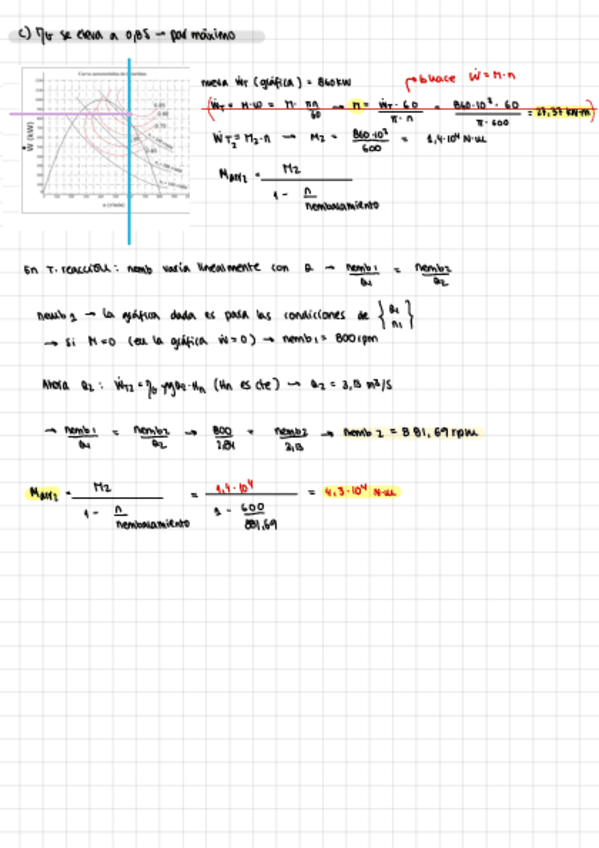 c) ηG se eleva a 0,85 → par máximo
nueva ẆT (gráfica) = 860 kW
hace Ẇ = M·n
ẆT = M·ω = M· πn/60 → M = ẆT · 60 / π·n = 860·10³ · 60 / π·600 = 27,37 kN·m
ẆT2 = M2·n → M2 = 860·10³ / 600 = 1,4·10⁴ N·m
MARR2 = M2 / 1 - n / nembalamiento
Ẇ (kW)
En T. reacción: nemb varía linealmente con Q → nemb1 / Q1 = nemb2 / Q2
nemb 1 → la gráfica dada es para las condiciones de { Q1 n1 }
→ si M=0 (en la gráfica Ẇ=0) → nemb1 = 800 rpm
Ahora Q2: ẆT2 = ηG ρgQ2·Hn (Hn es cte) → Q2 = 3,13 m³/s
→ nemb1 / Q1 = nemb2 / Q2 → 800 / 2,84 = nemb2 / 3,13 → nemb 2 = 881,69 rpm
MARR2 = M2 / 1 - n / nembalamiento = 1,4·10⁴ / 1 - 600 / 881,69 = 4,3·10⁴ N·m